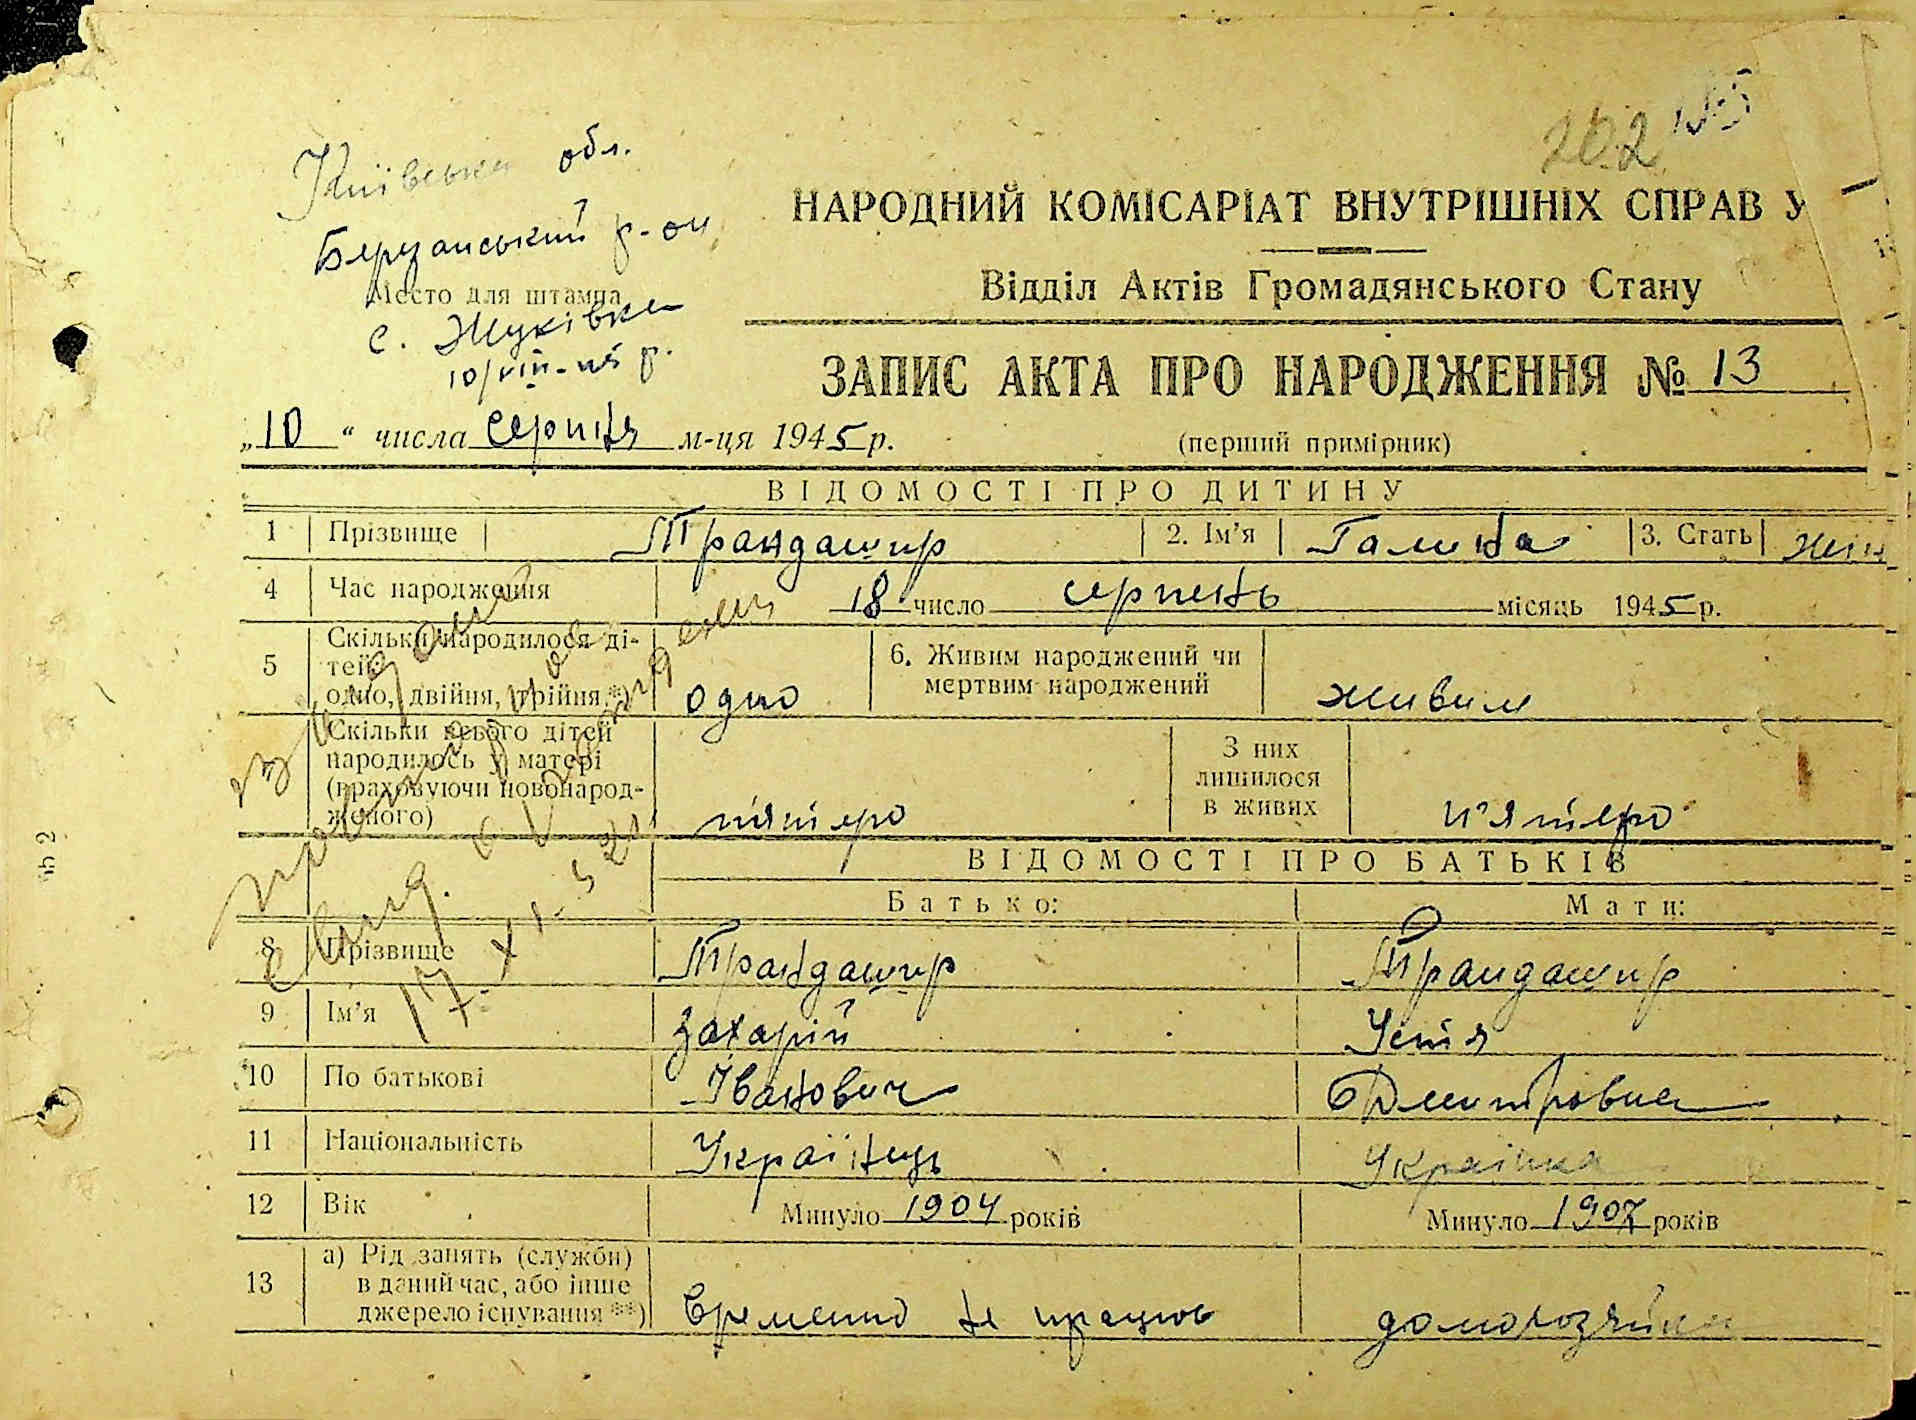 202
Київська обл.
Березанський р-он
Место для штампа
с. Жуківка
10/VIII-45 р.
НАРОДНИЙ КОМІСАРІАТ ВНУТРІШНІХ СПРАВ У
Відділ Актів Громадянського Стану
ЗАПИС АКТА ПРО НАРОДЖЕННЯ № 13
„10“ числа серпня м-ця 1945 р. (перший примірник)
ВІДОМОСТІ ПРО ДИТИНУ
1 Прізвище Трандашир 2. Ім’я Галина 3. Стать жін
4 Час народження 18 число серпень місяць 1945 р.
5 Скільки народилося ді-
тей:
одно, двійня, трійня *) одно 6. Живим народжений чи
мертвим народжений живим
7 Скільки всього дітей
народилось у матері
(враховуючи новонарод-
женого) пятеро З них
лишилося
в живих п'ятеро
ВІДОМОСТІ ПРО БАТЬКІВ
Батько: Мати:
8 Прізвище Трандашир Трандашир
9 Ім’я Захарій Устя
10 По батькові Іванович Дмитровна
11 Національність Українець Українка
12 Вік Минуло 1904 років Минуло 1907 років
13 а) Рід занять (служби)
в даний час, або інше
джерело існування **) Временно не працює домохозяйка
17.XI-52